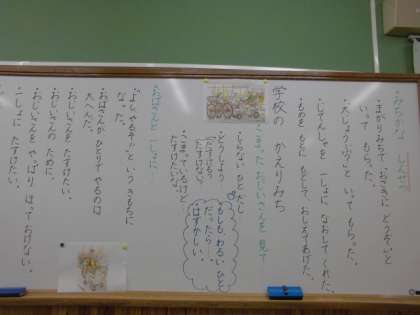 みぢかな しんせつ
・まがりみちで「おさきに どうぞ」と
いって もらった。
・「大じょうぶ？」と いって もらった。
・じてんしゃを 一しょに なおして くれた。
・もめを もとに もどして おしえてあげた。
学校の かえりみち
こまった おじいさんを 見て
・しらない ひとだし
・どうしよう
・こまっているけど
たすけたい。
もしも わるい ひと
だったら
はずかしい。
おばさんと 一しょに
・「よし、やるぞ！」という きもちに
なった。
・おばさんが ひとりで やるのは
大へんだ。
・おじいさんを たすけたい。
・おじいさんの ために。
・おじいさんを やっぱり ほっておけない。
・一しょに たすけたい。